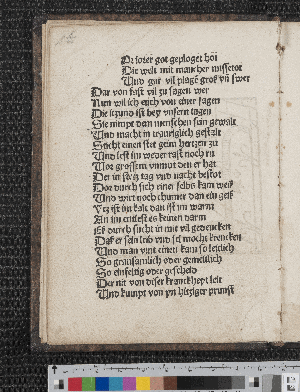 Die welt mit mancher missetot
Und gar vil plagē groß vñ swer
Dar von fast vil zu sagen wer
Nun wil ich eüch von einer sagen
Die itzund ist bey unsern tagen
Sie nimpt dem menschen sein gewalt
Und macht in traurigklich gestalt
Sticht einen stet geim hertzen zu
Und lest im weder rast noch ru
Vor grossem unmut den er hat
Der in stetz tag und nacht
Dar durch sich einer selbs kam weiß
Und wirt noch dümer dan ein geiß
Ytz ist im kalt dan ist im warm
An im entlest es keinen darm
Es durch sücht in mit vil gedencken
Das er sein leib und sel mocht krencken
Und man vint einen kam so leitlich
So grausamlich oder gemeitlich
So einfeltig oder gescheid
Der nit von diser kranckheyt leit
Und kumpt von yn hitziger prunst